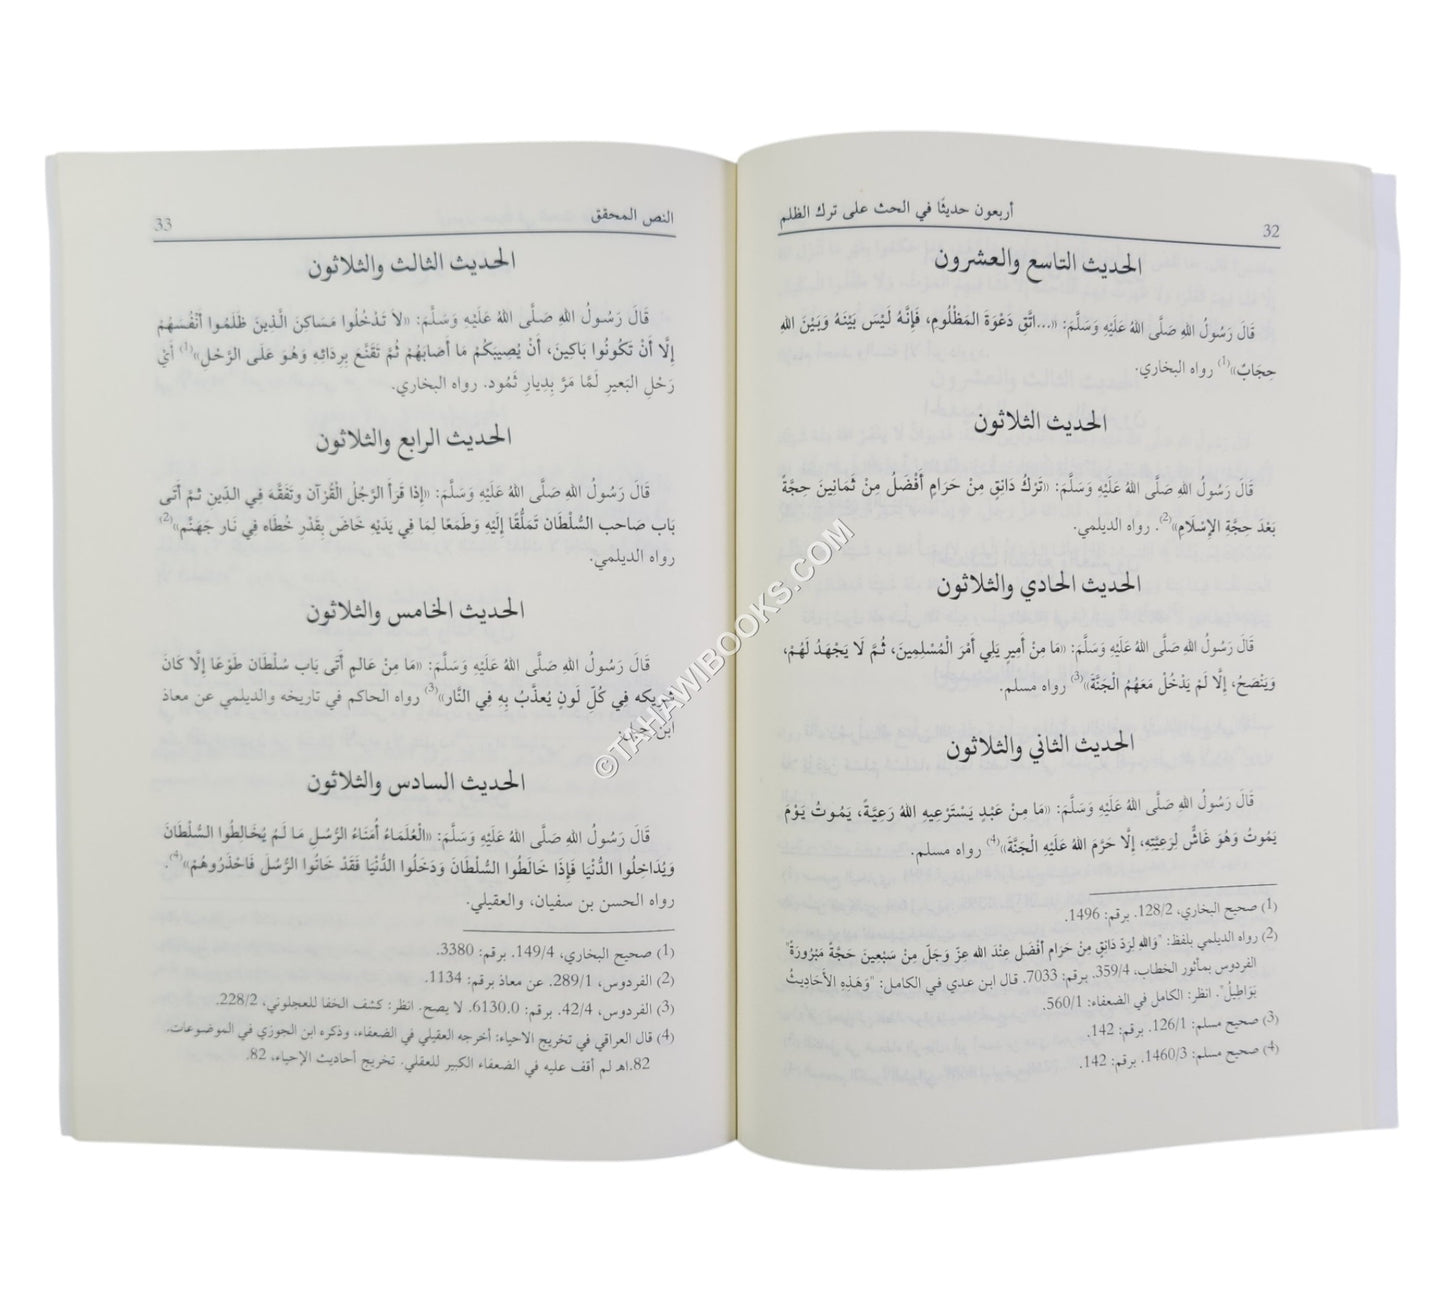 أربعون حديثًا في الحث على ترك الظلم
32
الحديث التاسع والعشرون
قَالَ رَسُولُ اللهِ صَلَّى اللهُ عَلَيْهِ وَسَلَّمَ: «...اتَّقِ دَعْوَةَ المَظْلُومِ، فَإِنَّهُ لَيْسَ بَيْنَهُ وَبَيْنَ اللهِ
حِجَابٌ»(1) رواه البخاري.
الحديث الثلاثون
قَالَ رَسُولُ اللهِ صَلَّى اللهُ عَلَيْهِ وَسَلَّمَ: «تَرْكُ دَانِقٍ مِنْ حَرَامٍ أَفْضَلُ مِنْ ثَمَانِينَ حِجَّةً
بَعْدَ حِجَّةِ الإِسْلَامِ»(2). رواه الديلمي.
الحديث الحادي والثلاثون
قَالَ رَسُولُ اللهِ صَلَّى اللهُ عَلَيْهِ وَسَلَّمَ: «مَا مِنْ أَمِيرٍ يَلِي أَمْرَ الْمُسْلِمِينَ، ثُمَّ لَا يَجْهَدُ لَهُمْ،
وَيَنْصَحُ، إِلَّا لَمْ يَدْخُلْ مَعَهُمُ الْجَنَّةَ»(3) رواه مسلم.
الحديث الثاني والثلاثون
قَالَ رَسُولُ اللهِ صَلَّى اللهُ عَلَيْهِ وَسَلَّمَ: «مَا مِنْ عَبْدٍ يَسْتَرْعِيهِ اللهُ رَعِيَّةً، يَمُوتُ يَوْمَ
يَمُوتُ وَهُوَ غَاشٌّ لِرَعِيَّتِهِ، إِلَّا حَرَّمَ اللهُ عَلَيْهِ الْجَنَّةَ»(4) رواه مسلم.
(1) صحيح البخاري، 128/2. برقم: 1496.
(2) رواه الديلمي بلفظ: "وَاللهِ لَرَدُّ دَانِقٍ مِنْ حَرَامٍ أَفْضَل عِنْدَ الله عزّ وَجَلّ مِنْ سَبْعِينَ حَجَّةً مَبْرُورَةً"
الفردوس بمأثور الخطاب، 359/4. برقم: 7033. قال ابن عدي في الكامل: "وَهَذِهِ الأَحَادِيثُ
بَوَاطِيلُ". انظر: الكامل في الضعفاء: 560/1.
(3) صحيح مسلم: 126/1. برقم: 142.
(4) صحيح مسلم: 1460/3. برقم: 142.
النص المحقق
33
الحديث الثالث والثلاثون
قَالَ رَسُولُ اللهِ صَلَّى اللهُ عَلَيْهِ وَسَلَّمَ: «لاَ تَدْخُلُوا مَسَاكِنَ الَّذِينَ ظَلَمُوا أَنْفُسَهُمْ
إِلَّا أَنْ تَكُونُوا بَاكِينَ، أَنْ يُصِيبَكُمْ مَا أَصَابَهُمْ ثُمَّ تَقَنَّعَ بِرِدَائِهِ وَهُوَ عَلَى الرَّحْلِ»(1) أَيْ
رَحْلِ البَعيرِ لَمَّا مَرَّ بِدِيارِ ثَمُود. رواه البخاري.
الحديث الرابع والثلاثون
قَالَ رَسُولُ اللهِ صَلَّى اللهُ عَلَيْهِ وَسَلَّمَ: «إِذَا قَرَأَ الرَّجُلُ الْقُرْآنَ وَتَفَقَّهَ فِي الدِّينِ ثمَّ أَتَى
بَابَ صَاحب السُّلْطَان تَمَلُّقًا إِلَيْهِ وَطَمَعًا لمَا فِي يَدَيْهِ خَاضَ بِقَدْرِ خُطَاه فِي نَار جَهَنَّم»(2)
رواه الديلمي.
الحديث الخامس والثلاثون
قَالَ رَسُولُ اللهِ صَلَّى اللهُ عَلَيْهِ وَسَلَّمَ: «مَا مِنْ عَالمٍ أَتَى بَاب سُلْطَان طَوْعًا إِلَّا كَانَ
شَرِيكه فِي كُلّ لَونٍ يُعذَّبُ بِهِ فِي النَّار»(3) رواه الحاكم في تاريخه والديلمي عن معاذ
ابن جبل.
الحديث السادس والثلاثون
قَالَ رَسُولُ اللهِ صَلَّى اللهُ عَلَيْهِ وَسَلَّمَ: «الْعُلَمَاءُ أُمَنَاءُ الرُّسُلِ مَا لَمْ يُخَالِطُوا السُّلْطَانَ
وَيُدَاخِلُوا الدُّنْيَا فَإِذَا خَالَطُوا السُّلْطَانَ وَدَخَلُوا الدُّنْيَا فَقَدْ خَانُوا الرُّسُلَ فَاحْذَرُوهُمْ»(4).
رواه الحسن بن سفيان، والعقيلي.
(1) صحيح البخاري، 149/4. برقم: 3380.
(2) الفردوس، 289/1. عن معاذ برقم: 1134.
(3) الفردوس، 42/4. برقم: 6130.0. لا يصح. انظر: كشف الخفا للعجلوني، 228/2.
(4) قال العراقي في تخريج الاحياء: أخرجه العقيلي في الضعفاء، وذكره ابن الجوزي في الموضوعات.
82.اهـ لم أقف عليه في الضعفاء الكبير للعقلي. تخريج أحاديث الإحياء، 82.
©TAHAWIBOOKS.COM